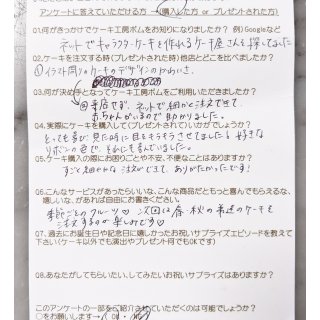 アンケートに答えていただける方 → 購入した方 or プレゼントされた方
01.何がきっかけでケーキ工房ボムをお知りになりましたか? 例)Googleなど
ネットでキャラクターケーキを作れるケーキ屋さんを探してました
02.ケーキを注文する時(プレゼントされた時)他店とどこを比べましたか?
①イラスト周りのケーキのデザインのかわいさ
03.何が決め手となってケーキ工房ボムをご利用いただきましたか?
ネットで細かく注文できて、
赤ちゃんがいるので助かりました。
04.実際にケーキを購入して(プレゼントされて)いかがでしたか?
とっても喜び、見た時に目をキラキラさせてました 好きな
リボンの色で、それにも喜んでいました。
05.ケーキ購入の際にお困りごとや不安、不便なことはありますか?
すごく細かな注文ができて、ありがたかったです!
06.こんなサービスがあったらいいな、こんな商品だともっと喜んでもらえるな、
嬉しいな、があれば自由にお書きください。
季節ごとのフルーツ♡ 次回は春・秋の
注文するのが楽しみです♡
07.過去にお誕生日や記念日に嬉しかったお祝いサプライズエピソードを教えて
下さい(ケーキ以外でも演出やプレゼント何でもOKです)
08.あなたがしてもらいたい、してみたいお祝いサプライズはありますか?
このアンケートの一部をご紹介させていただくのは可能でしょうか?
○をお願いします→